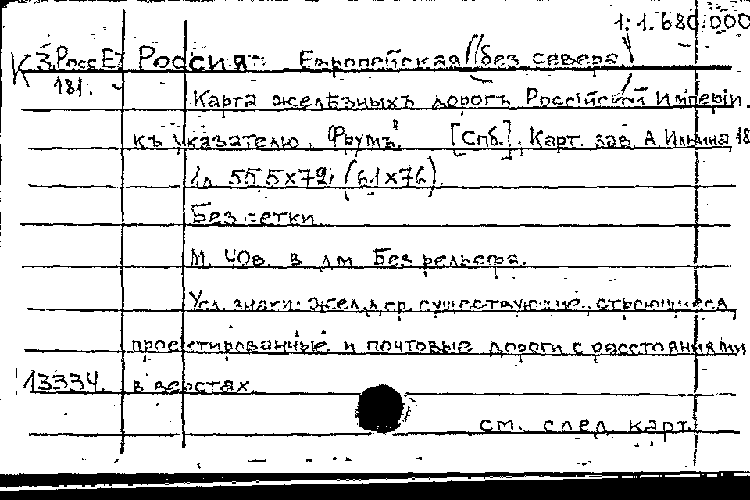 1:1.680.000
К 3.Росс.Е/ Россия: Европейская (без севера)
181.
Карта желѣзныхъ дорогъ Россійской Имперіи.
къ указателю Фрумъ. [Спб], Карт. зав. А. Ильина 18
1л 55,5х72; (61х76).
Без сетки.
М. 40в. в дм. Без рельефа.
Усл. знаки: жел.дор. существующие, строющиеся,
проектированные и почтовые дороги с расстояниями
13334. в верстах.
см. след. карт.